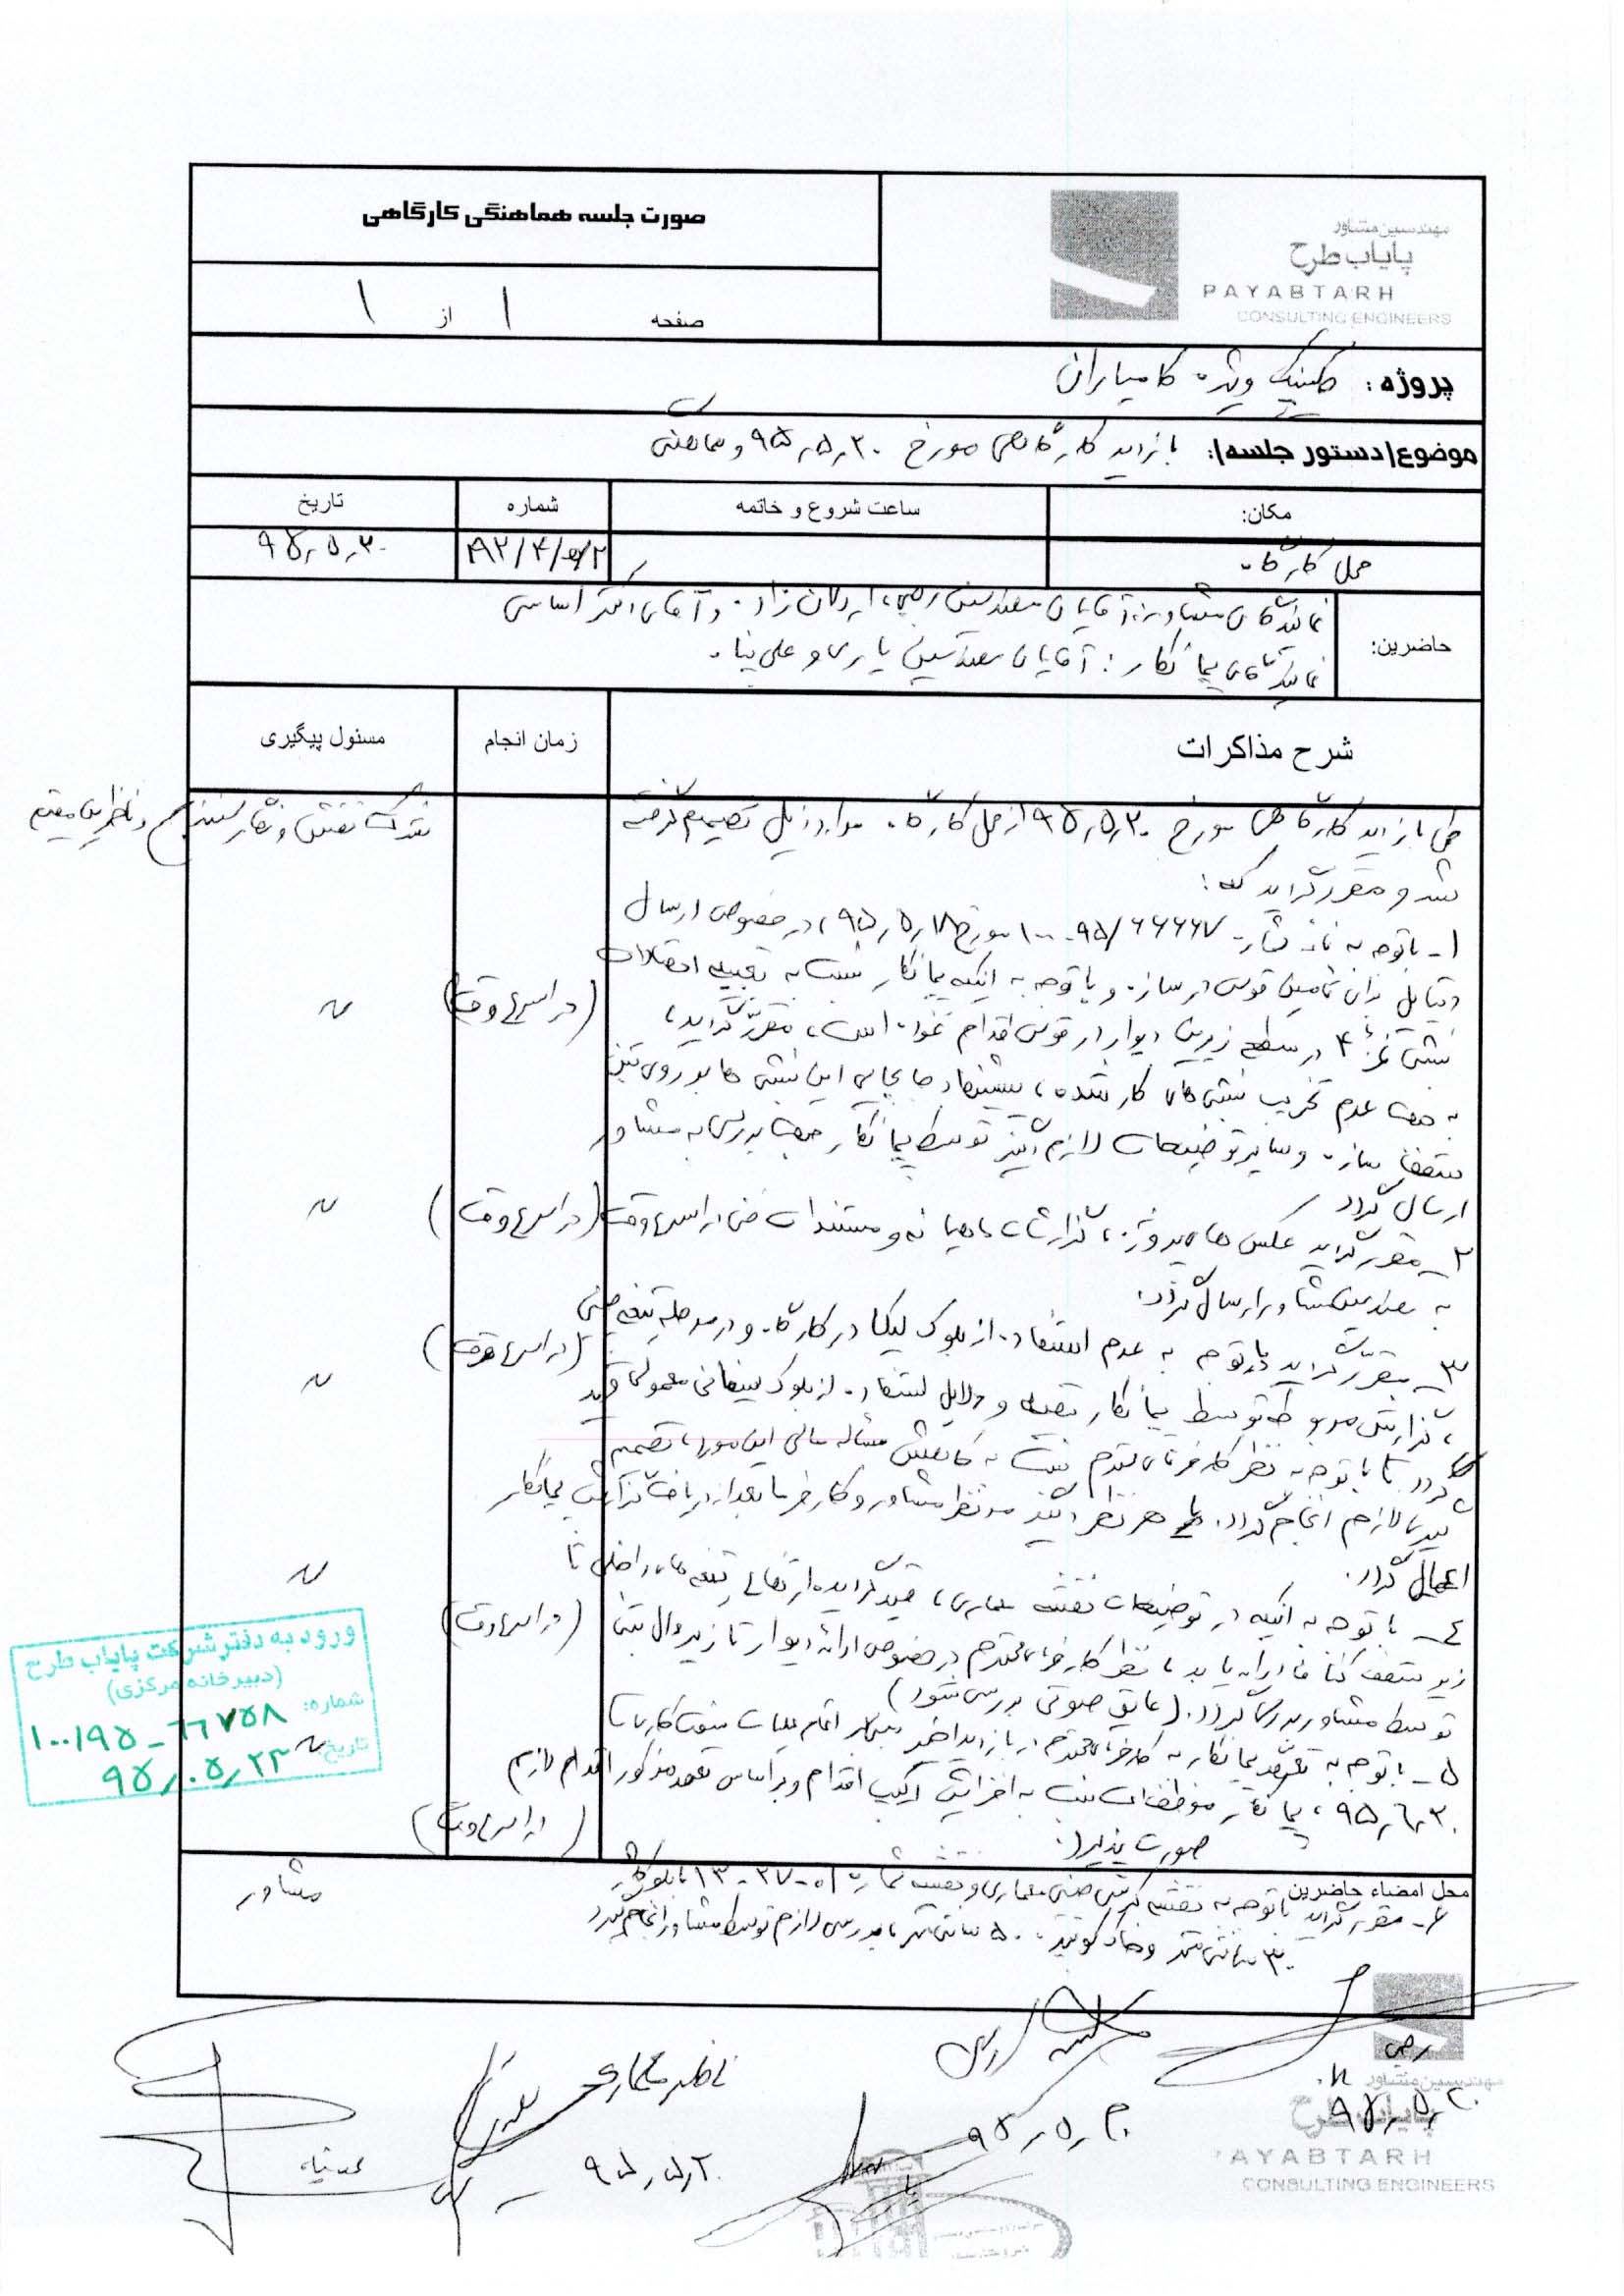 صورت جلسه هماهنگی کارگاهی
مهندسین مشاور
پایاب طرح
PAYABTARH
CONSULTING ENGINEERS
صفحه ۱ از ۱
پروژه: کلینیک ویژه کامیاران
موضوع/دستور جلسه/: بازدید کارگاهی مورخ ۹۵٫۵٫۲۰ و هماهنگی
مکان: ساعت شروع و خاتمه شماره تاریخ
محل کارگاه ۹۵٫۵٫۲۰
حاضرین:
نمایندگان مشاور: آقایان مهندسین رجبی، اردلان نژاد و آقای دکتر اساسی
نمایندگان پیمانکار: آقایان مهندسین یاری و علی نیا
شرح مذاکرات زمان انجام مسئول پیگیری
طی بازدید کارگاهی مورخ ۹۵٫۵٫۲۰ از محل کارگاه موارد ذیل تصمیم گرفته
شد و مقرر گردید که:
۱- با توجه به نامه شماره ۱۰۰-۹۵/۶۶۶۶۷ مورخ ۹۵٫۵٫۱۸، در خصوص ارسال
برای تامین قوس در سازه و با توجه به اینکه پیمانکار نسبت به تعبیه اتصالات
نبشی نمره ۴ در سطح زیرین دیوار در قوس اقدام نموده است، مقرر گردید، (در اسرع وقت) 〃
به جهت عدم تخریب نبشی های کار شده، پیشنهاد جابجایی این نبشی ها بر روی بتن
سقف سازه و سایر توضیحات لازم نیز توسط پیمانکار جهت بررسی به مشاور
ارسال گردد
۲- مقرر گردید عکس های پروژه، گزارشات ماهیانه و مستندات فنی در اسرع وقت (در اسرع وقت) 〃
به مهندسین مشاور ارسال گردد.
۳- مقرر گردید با توجه به عدم استفاده از بلوک لیکا در کارگاه و در مرحله تیغه چینی (در اسرع وقت)
گزارش مربوطه توسط پیمانکار تهیه و دلایل استفاده از بلوک سیمانی معمولی قید 〃
گردد تا با توجه به نظر کارفرمای محترم نسبت به کاهش مساله مالی این مورد، تصمیم
گیری لازم انجام گردد. هر نظر مد نظر مشاور و کارفرما بعد از دریافت گزارش پیمانکار
اعمال گردد. 〃
۴- با توجه به اینکه در توضیحات نقشه معماری، قید گردیده ارتفاع تیغه های داخلی تا
زیر سقف کناف ادامه یابد، نظر کارفرمای محترم در خصوص ادامه دیوار تا زیر دال بتنی (در اسرع وقت)
توسط مشاور بررسی گردد. (عایق صوتی بررسی شود)
۵- با توجه به تعهد پیمانکار به کارفرمای محترم در بازدید اخیر اتمام عملیات سفت کاری تا 〃
۹۵٫۶٫۳۰، پیمانکار موظف است نسبت به افزایش اکیپ اقدام و بر اساس تعهد مذکور اقدام لازم
صورت پذیرد. (در اسرع وقت)
محل امضاء حاضرین
۶- مقرر گردید با توجه به نقشه معماری و نقشه شماره
۳۰ سانتی متر ۵۰ سانتی متر، بررسی لازم توسط مشاور انجام گردد
مشاور
ورود به دفتر شرکت پایاب طرح
(دبیرخانه مرکزی)
شماره: ۱۰۰/۹۵-۶۶۷۵۸
تاریخ: ۹۵٫۰۵٫۲۳
رجبی
۹۵٫۵٫۲۰
۹۵٫۵٫۲۰
ناظر معماری
۹۵٫۵٫۲۰
مهندسین مشاور
پایاب طرح
PAYABTARH
CONSULTING ENGINEERS